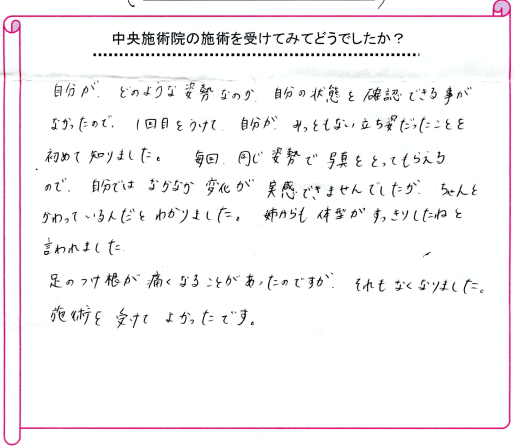 中央施術院の施術を受けてみてどうでしたか？
自分が、どのような姿勢なのか、自分の状態を確認できる事が
なかったので、1回目をうけて、自分が、みっともない立ち姿だったことを
初めて知りました。 毎回、同じ姿勢で写真をとってもらえる
ので、自分ではなかなか変化が実感できませんでしたが、ちゃんと
かわっているんだとわかりました。 姉からも体型がすっきりしたねと
言われました。
足のつけ根が痛くなることがあったのですが、それもなくなりました。
施術を受けてよかったです。